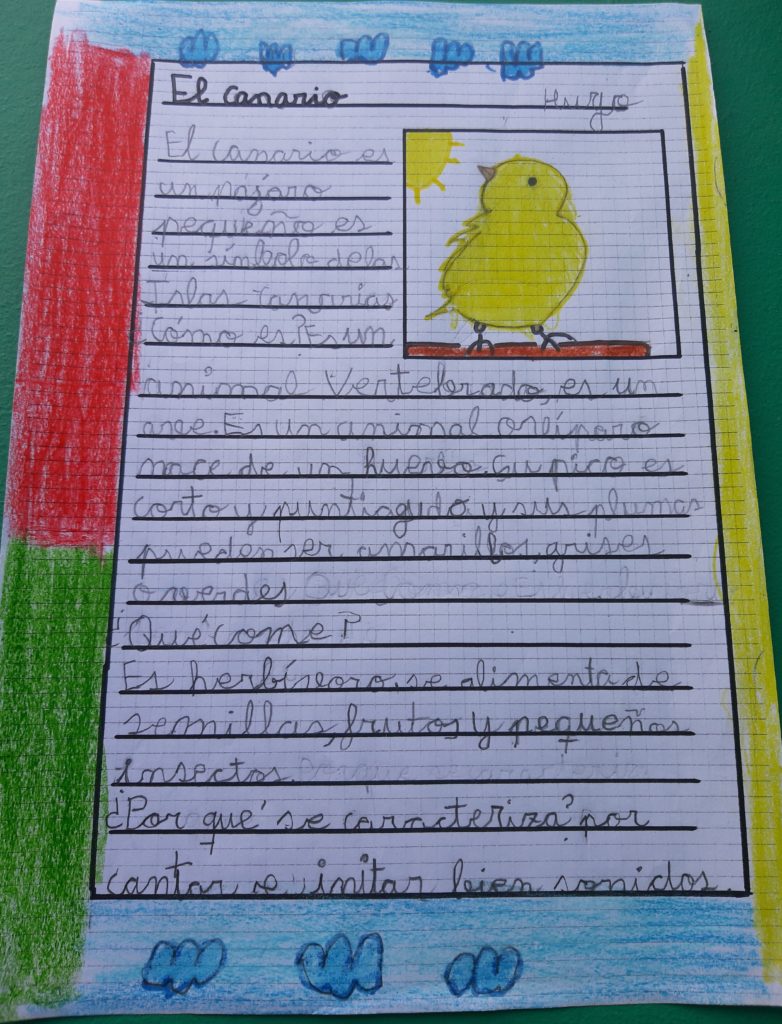 El canario
Hugo
El canario es
un pájaro
pequeño es
un símbolo de las
Islas canarias
Cómo es? Es un
animal vertebrado, es un
ave. Es un animal ovíparo
nace de un huevo. Su pico es
corto y puntiagudo y sus plumas
pueden ser amarillas, grises
o verdes
¿Qué come?
Es herbívoro, se alimenta de
semillas, frutos y pequeños
insectos.
¿Por qué se caracteriza? por
cantar e initar bien sonidos.